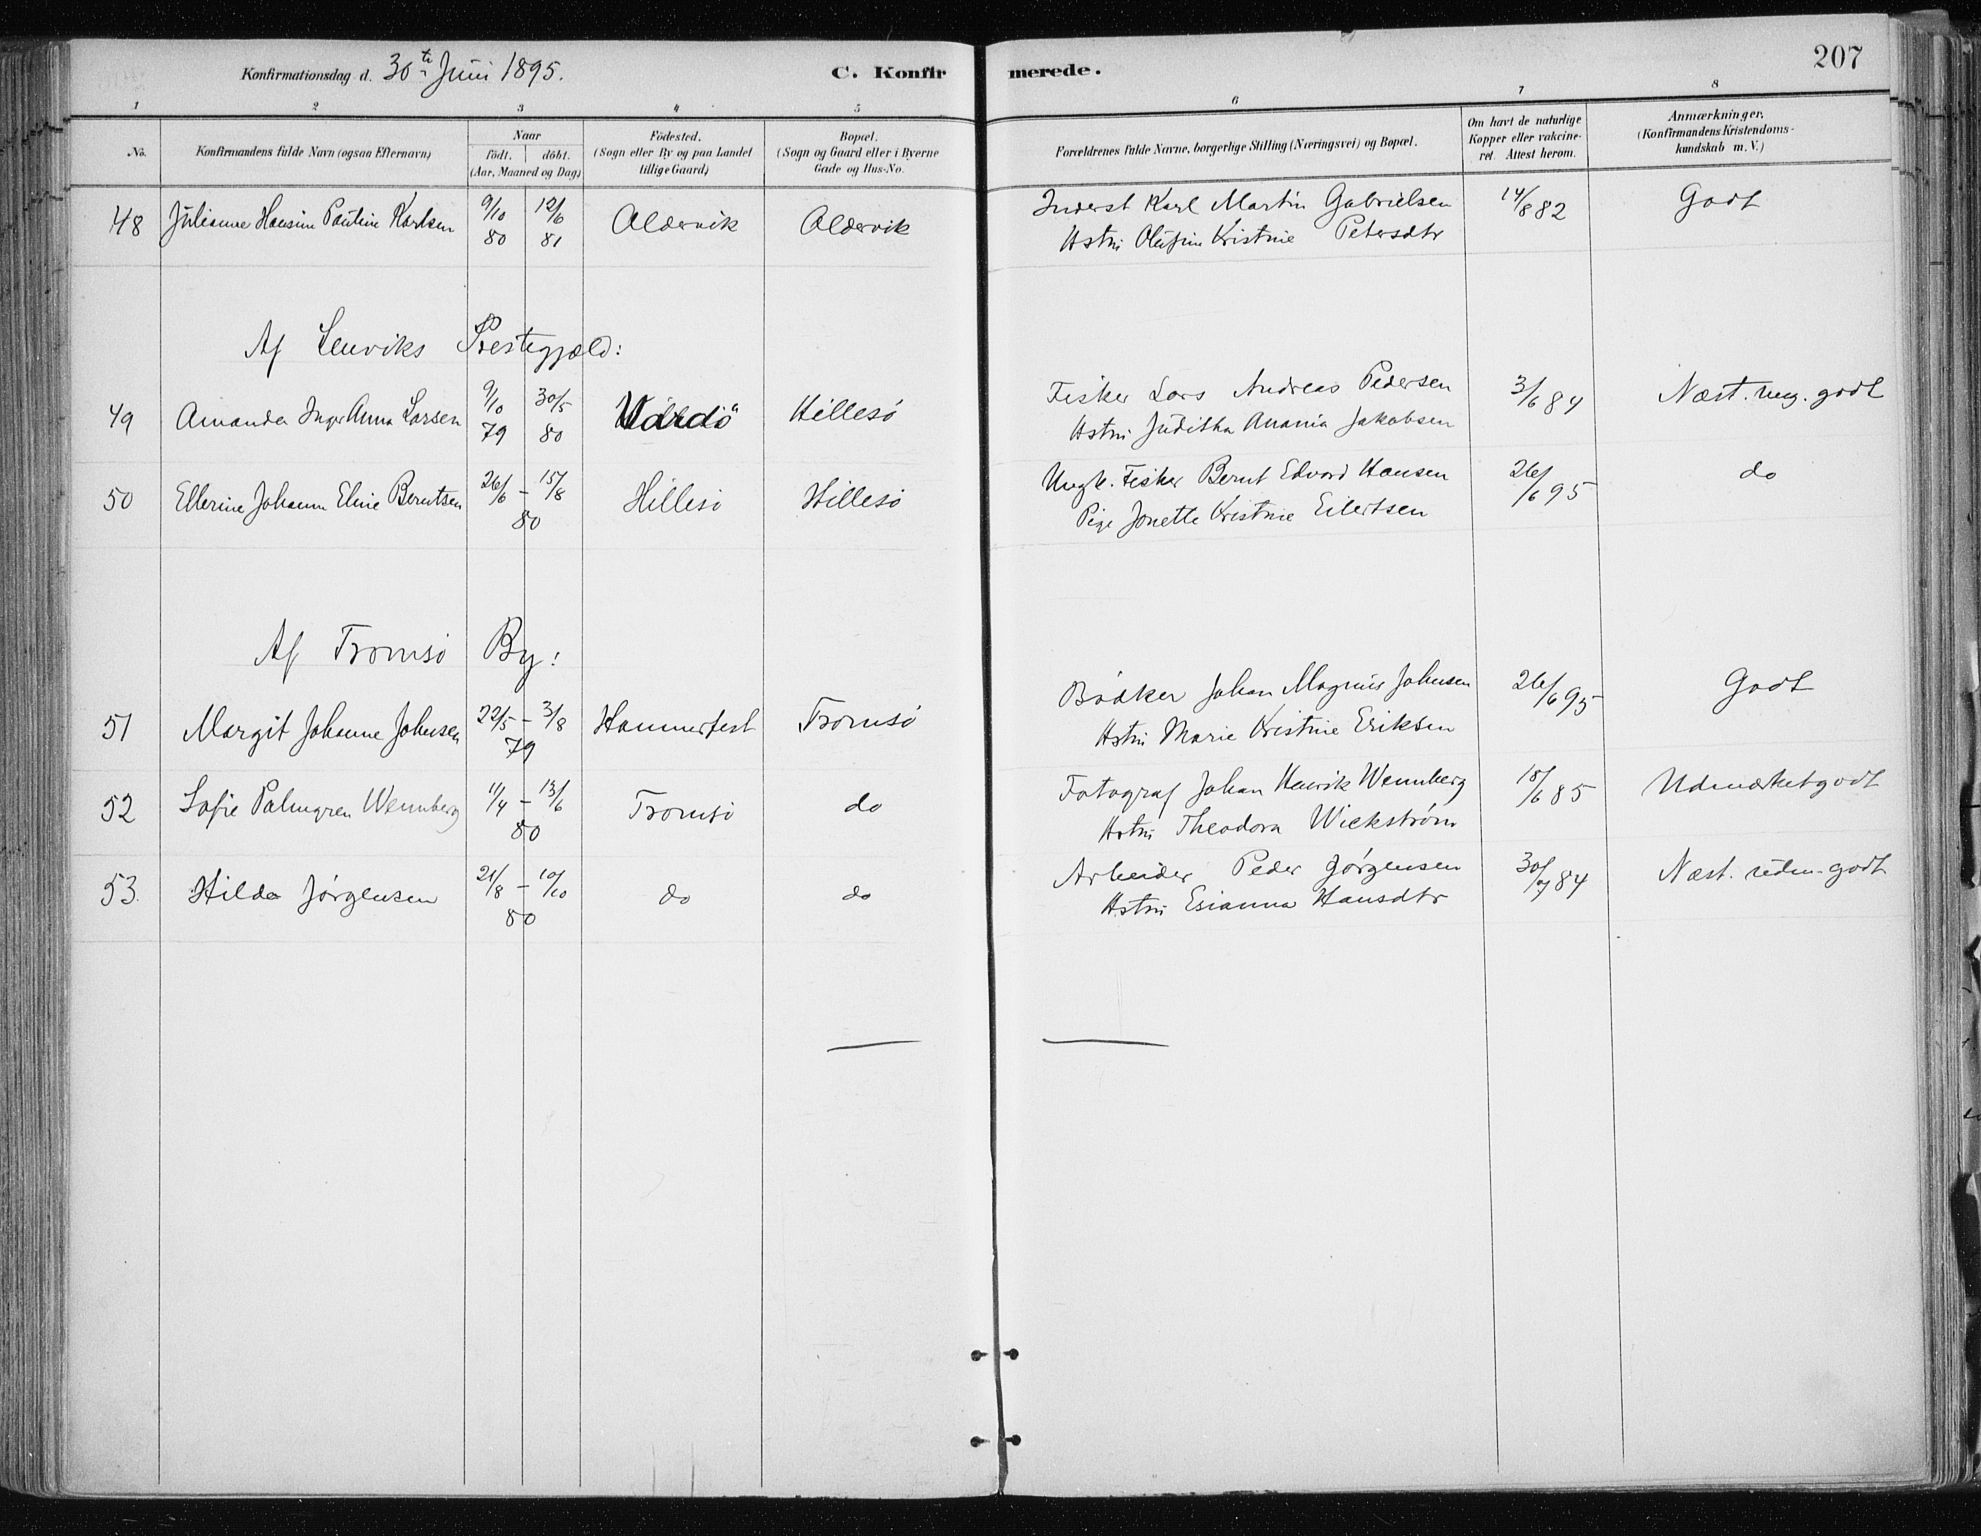 Konfirmationsdag d. 30te Juni 1895. C. Konfir merede. 207
1 2 3 4 5 6 7 8
No. Konfirmandens fulde Navn (ogsaa Efternavn) Naar födt. döbt. (Aar, Maaned og Dag) Födested. (Sogn eller By og paa Landet tillige Gaard) Bopæl. (Sogn og Gaard eller i Byerne Gade og Hus-No. Forældrenes fulde Navne, borgerlige Stilling (Næringsvei) og Bopæl. Om havt de naturlige Kopper eller vakcineret. Attest herom. Anmærkninger. (Konfirmandens Kristendomskundskab m. V.)
48 Julianne Hansine Pauline Karlsen 9/10 80 12/6 81 Oldervik Oldervik Inderst Karl Martin Gabrielsen 14/8 82 Godt
Hstru Olufine Kristine Petersdtr
Af Lenviks Prestegjæld:
49 Amanda Inger Anna Larsen 9/10 79 30/5 80 Vardö Hillesö Fisker Lars Andreas Pedersen 3/6 84 Næst. meg. godt
Hstru Juditha Anania Jakobsen
50 Ellerine Johanne Eline Berntsen 26/6 - 15/8 80 Hillesö Hillesö Ungk. Fisker Bernt Edvard Hansen 26/6 95 do
Pige Jonette Kristine Eilertsen
Af Tromsö By:
51 Margit Johanne Johnsen 22/5 - 3/8 79 Hammerfest Tromsö Bödker Johan Magnus Johnsen 26/6 95 Godt
Hstru Marie Kristine Eriksen
52 Sofie Palmgren Wennberg 11/4 - 13/6 80 Tromsö do Fotograf Johan Henrik Wennberg 18/6 85 Udmærket godt
Hstru Theodora Wickström
53. Hilda Jörgensen 21/8 - 10/10 80 do do Arbeider Peder Jörgensen 30/7 84 Næst. udm. godt
Hstru Esianna Hansdtr